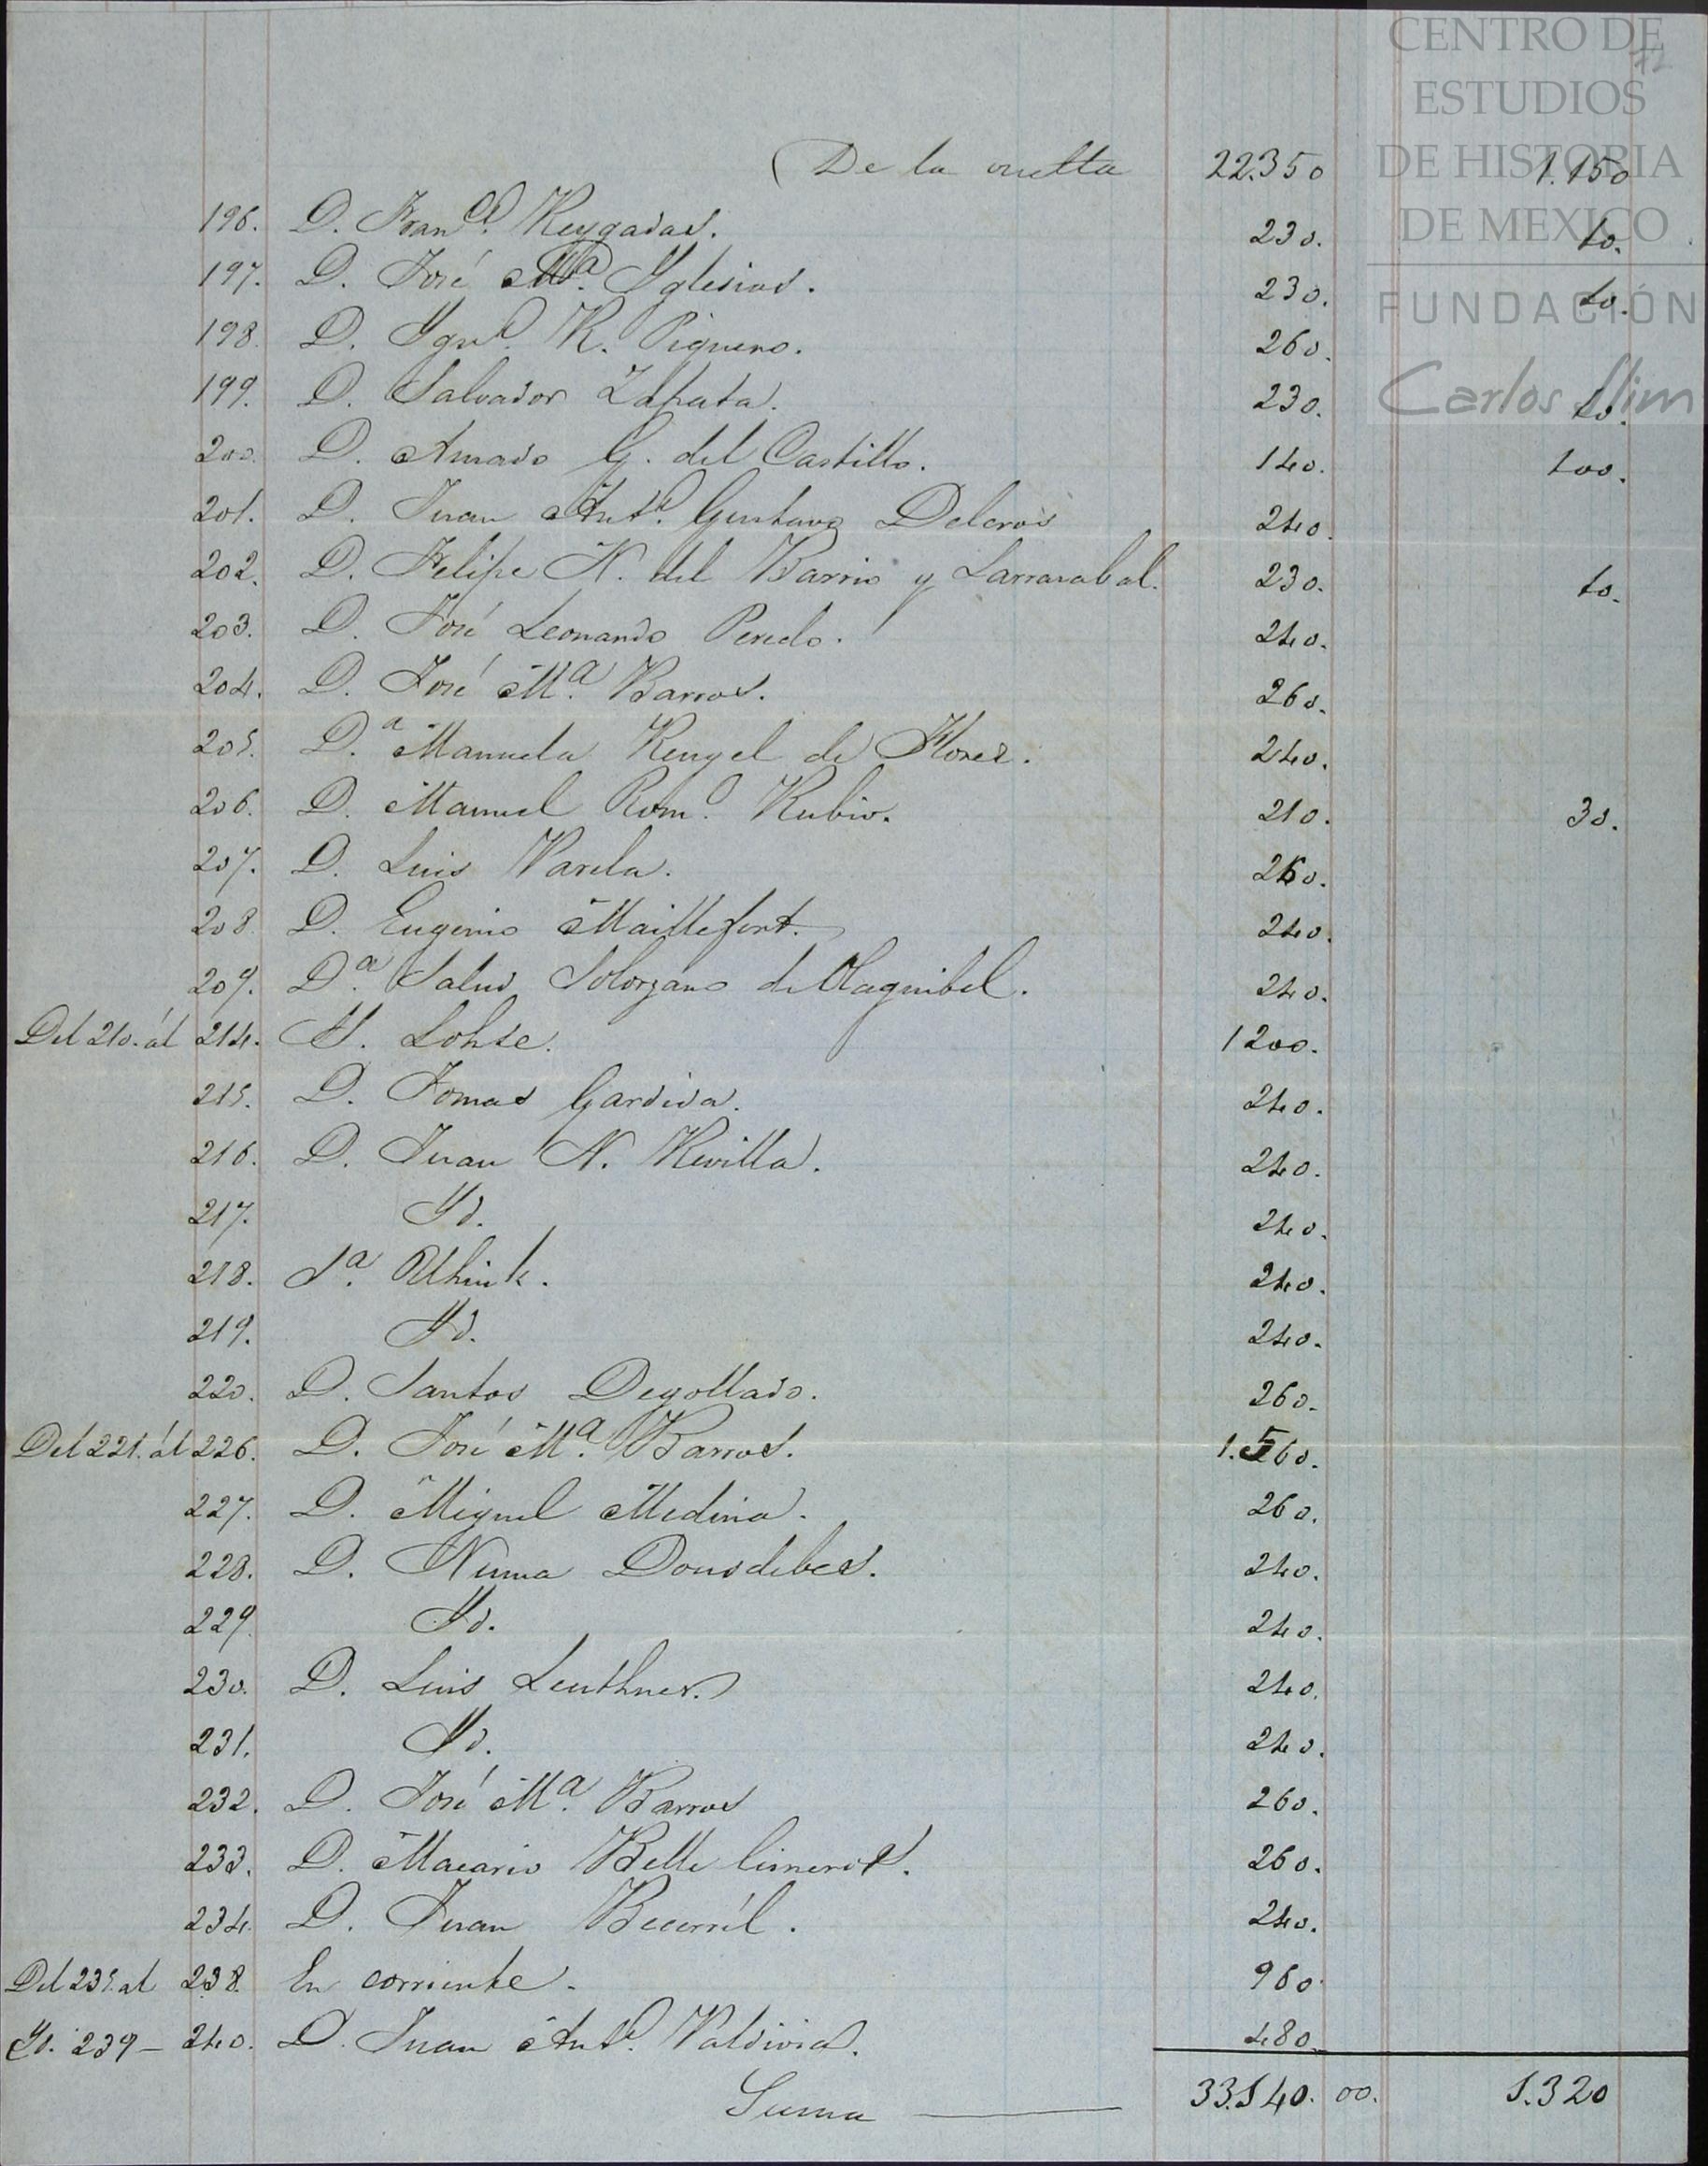 CENTRO DE
ESTUDIOS
DE HISTORIA
DE MEXICO
FUNDACIÓN
Carlos Slim
72
De la vuelta 22.350 1.150
196. D. Franco. Reygadas. 230. 10.
197. D. José Ma. Yglesias. 230. 10.
198. D. Ygno. R. Piquero. 260.
199. D. Salvador Zapata. 230. 10.
200. D. Amado G. del Castillo. 140. 100.
201. D. Juan Anto. Gustavo Delcros 240.
202. D. Felipe N. del Barrio y Larrazabal. 230. 10.
203. D. José Leonardo Peredo. 240.
204. D. José Ma. Barros. 260.
205. D.a Manuela Rengel de Flores. 240.
206. D. Manuel Romo. Rubio. 210. 30.
207. D. Luis Varela. 260.
208. D. Eugenio Maillefert. 240.
209. Da. Salud Solorzano de Olaguibel. 240.
Del 210. al 214. H. Lohse. 1200.
215. D. Tomas Gardida. 240.
216. D. Juan N. Revilla. 240.
217. Yd. 240.
218. Sa. Uhink. 240.
219. Yd. 240.
220. D. Santos Degollado. 260.
Del 221. al 226. D. José Ma. Barros. 1.560.
227. D. Miguel Medina. 260.
228. D. Numa Dousdebes. 240.
229. Yd. 240.
230. D. Luis Leuthner. 240.
231. Yd. 240.
232. D. José Ma. Barros 260.
233. D. Macario Belle Cisneros. 260.
234. D. Juan Becerríl. 240.
Del 235. al 238. En corriente. 960
Yd. 239 — 240. D. Juan Anto. Valdivia. 480.
Suma — 33.140. 00. 1.320